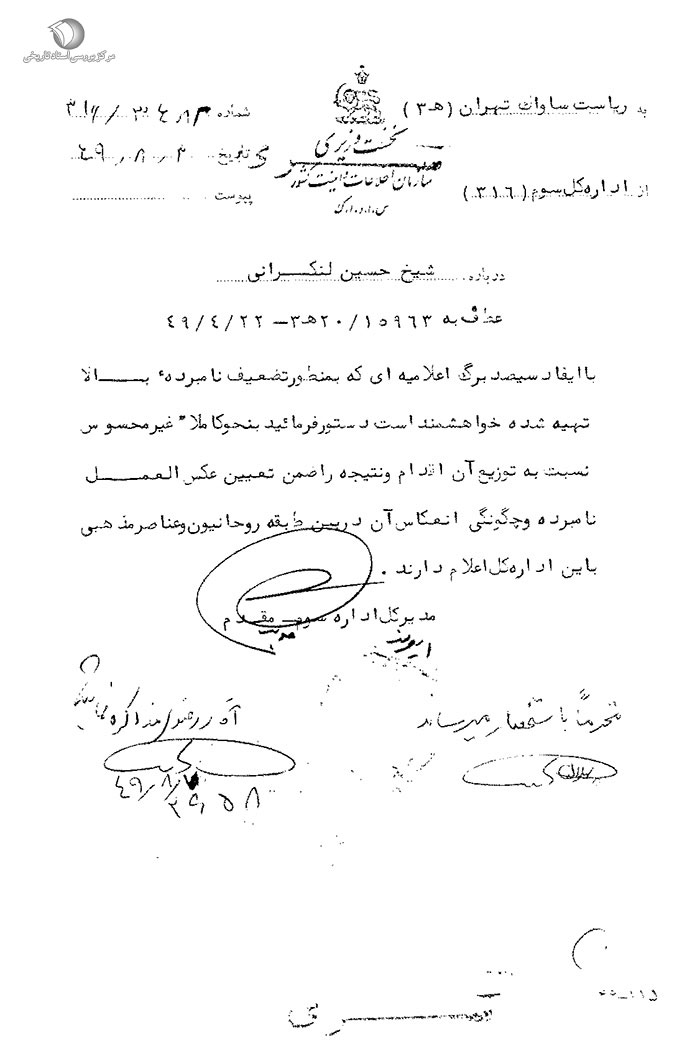 مرکز بررسی اسناد تاریخی
به ریاست ساواک تهران (هـ ۳)
از اداره کل سوم (۳۱۶)
نخست وزیری
سازمان اطلاعات و امنیت کشور
س.ا.و.ا.ک
شماره
تاریخ
پیوست
درباره شیخ حسین لنکرانی
عطف به ۲۰/۱۵۹۶۳هـ۳ – ۴۹/۴/۲۲
با ایفاد سیصد برگ اعلامیه ای که بمنظور تضعیف نامبرده بالا
تهیه شده خواهشمند است دستور فرمائید بنحو کاملا" غیر محسوس
نسبت به توزیع آن اقدام ونتیجه را ضمن تعیین عکس العمل
نامبرده وچگونگی انعکاس آن در بین طبقه روحانیون وعناصر مذهبی
باین اداره کل اعلام دارند .
مدیرکل اداره سوم – مقدم
محترماً باستحضار میرساند
مذاکره
۴۹/۸/۷